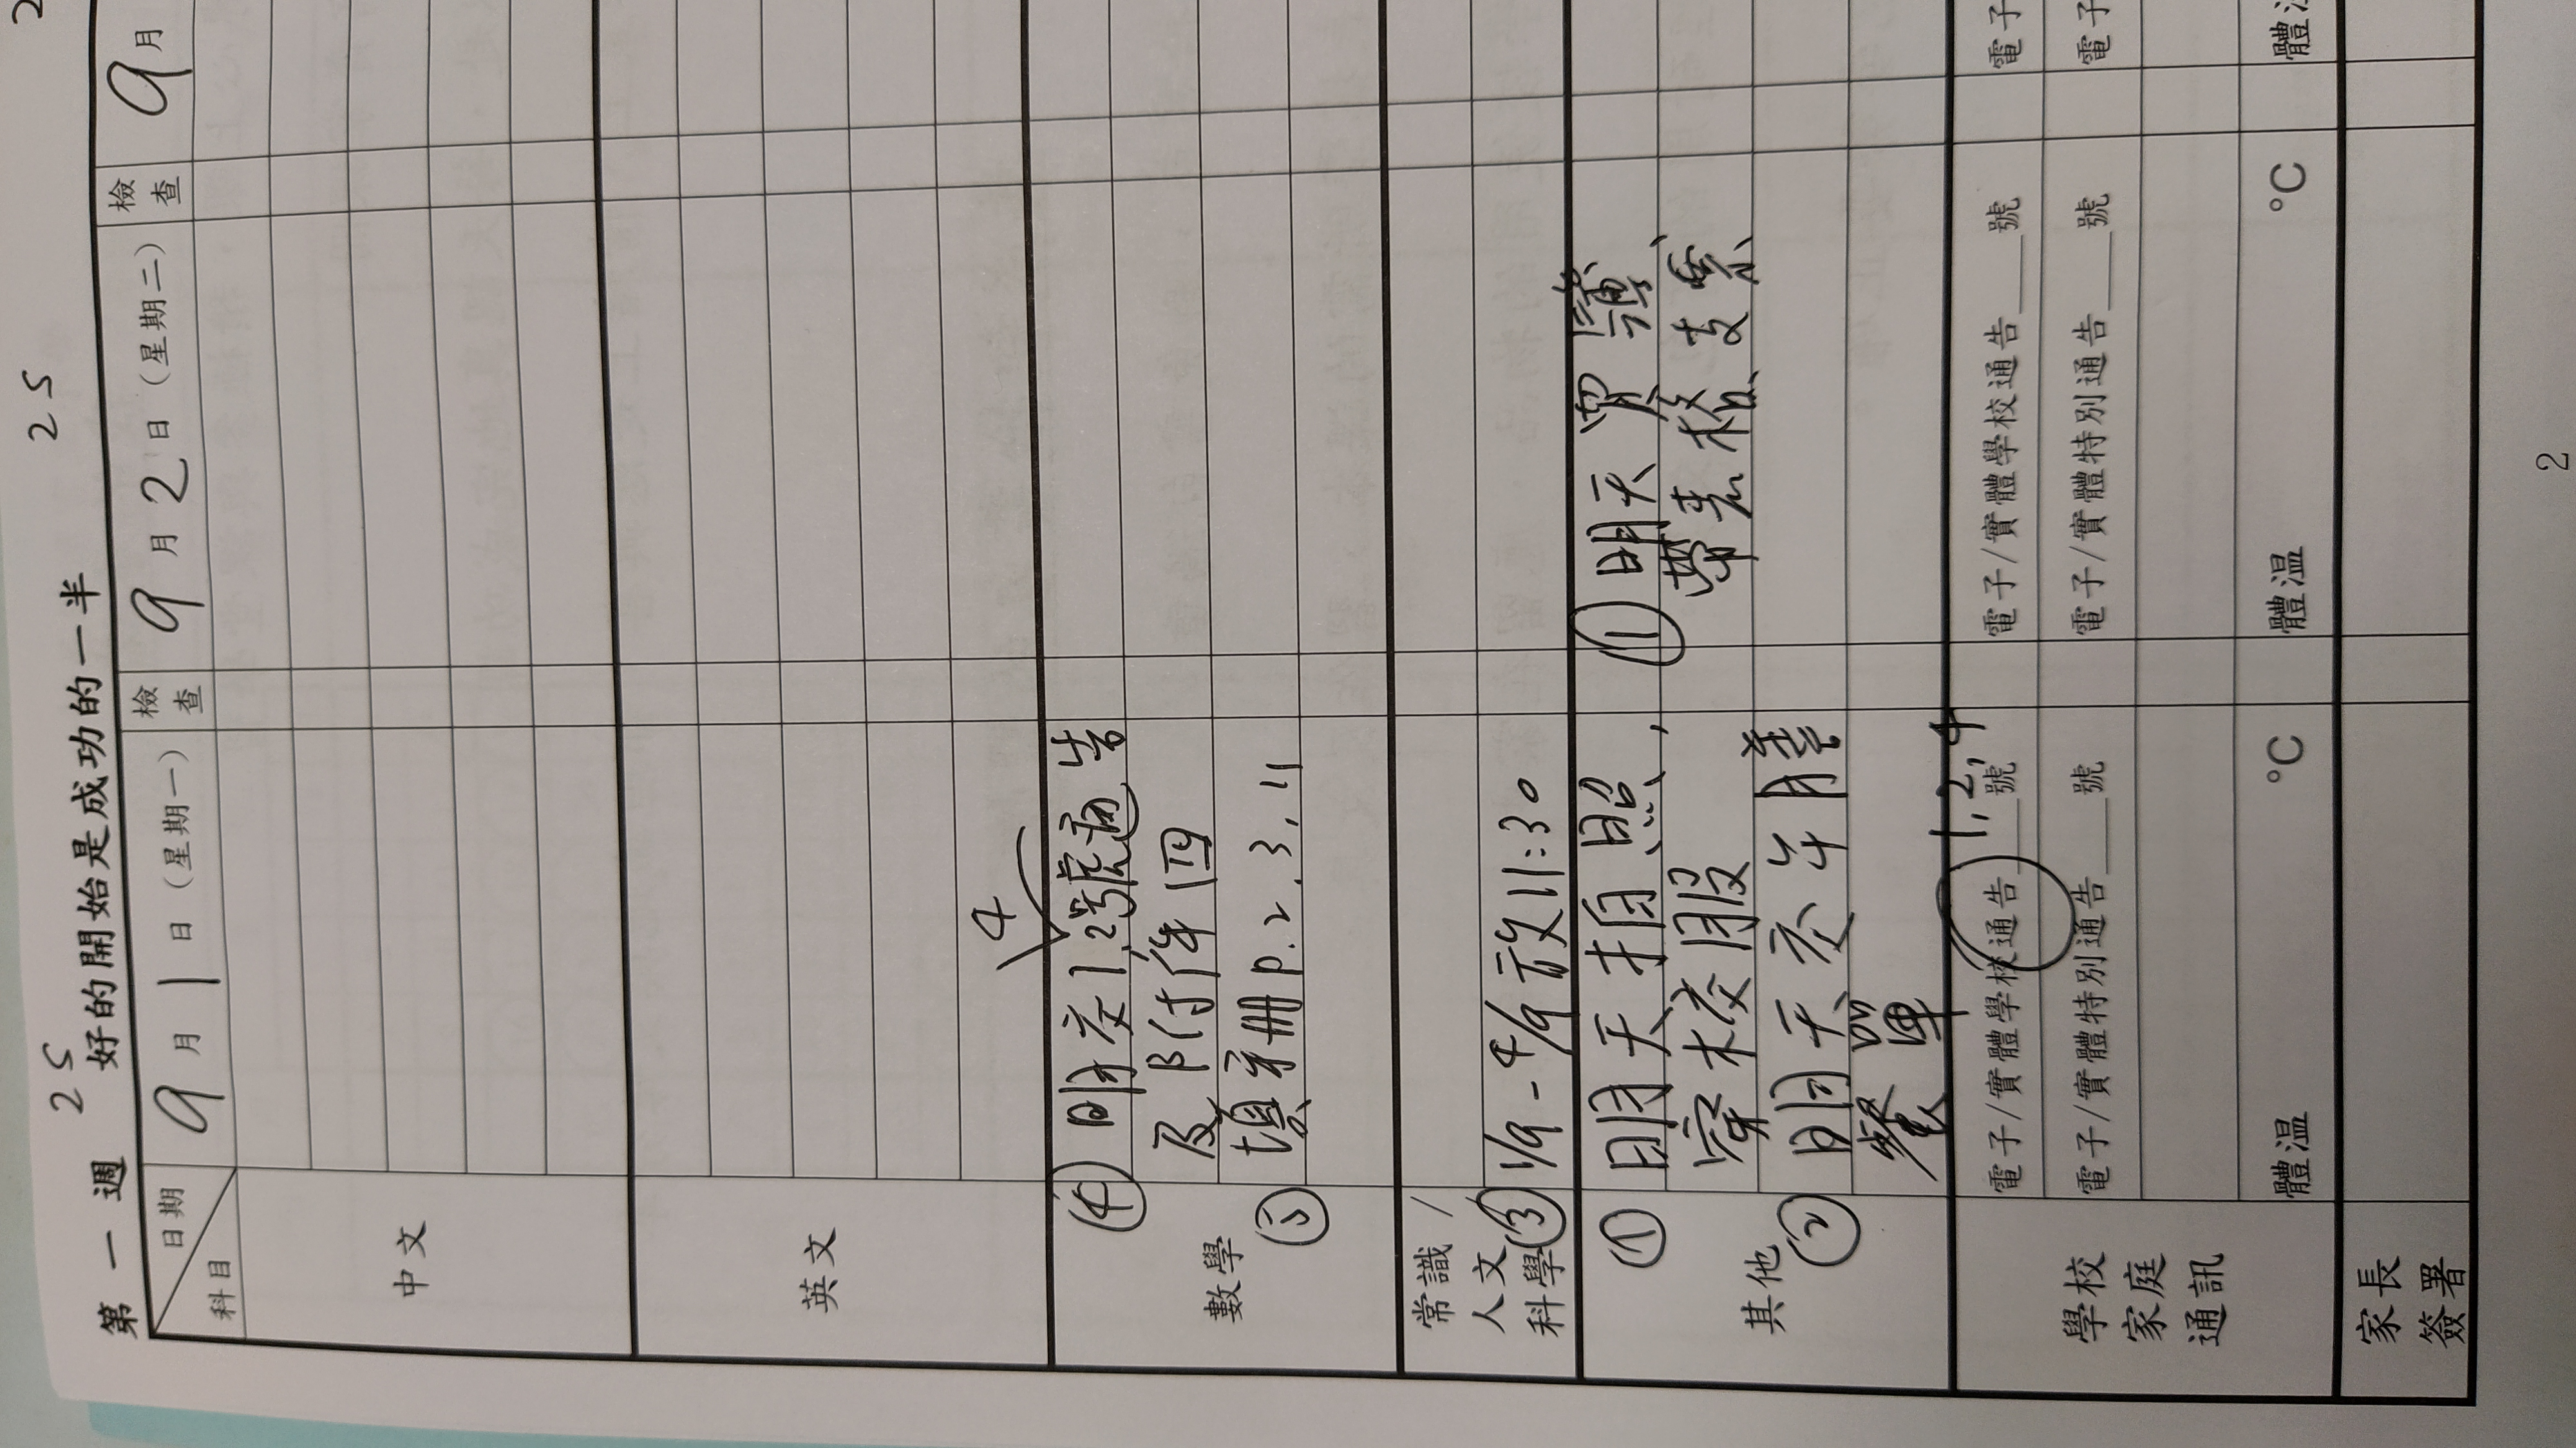 2
2S
2S
第一週 好的開始是成功的一半
日期
科目
9月1日(星期一)
檢查
9月2日(星期二)
檢查
9月
中文
英文
4
數學
④ 明交1,2號通告
及附件四
⑤ 填手冊P.2,3,11
常識/
人文/
科學
③ 1/9-4/9放11:30
其他
① 明天拍照,
穿校服
② 明天交午膳
餐單
① 明天買簿
帶表格支票
學校
家庭
通訊
電子/實體學校通告___號
1,2,4
電子/實體特別通告___號
體溫 °C
電子/實體學校通告___號
電子/實體特別通告___號
體溫 °C
電子
電子
體溫
家長
簽署
2